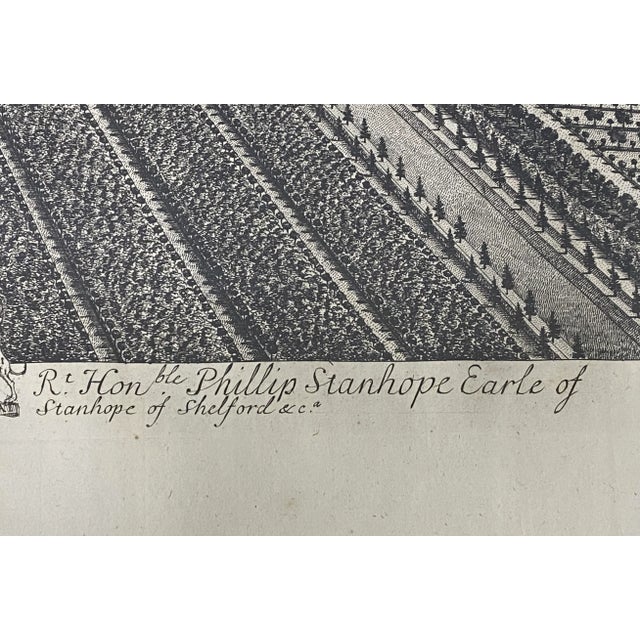 R.t Hon.ble Phillip Stanhope Earle of
Stanhope of Shelford &c.a